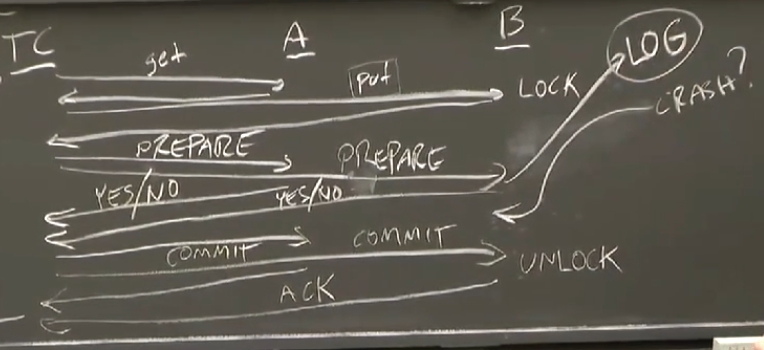 TC A B LOG
get put LOCK CRASH?
PREPARE PREPARE
YES/NO YES/NO
COMMIT COMMIT
ACK UNLOCK